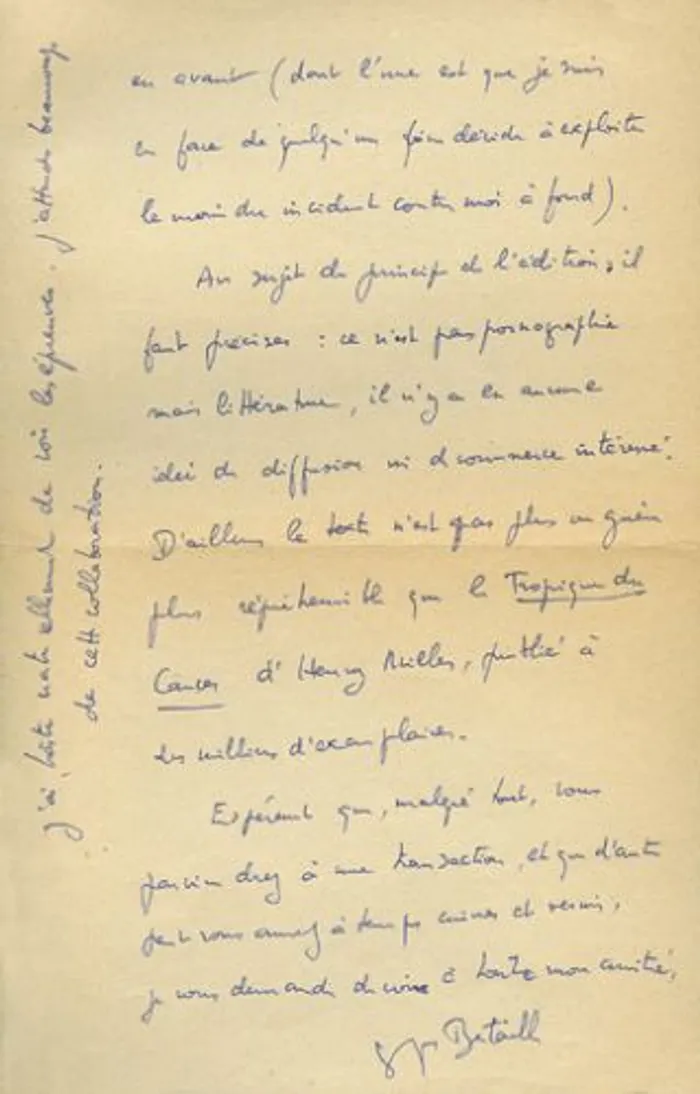 en avant (dont l'une est que je suis
en face de quelqu'un décidé à exploiter
le moindre incident contre moi à fond).
Au sujet du principe de l'édition, il
faut préciser : ce n'est pas pornographie
mais littérature, il n'y a en aucune
idée de diffusion ni de commerce intéressé.
D'ailleurs le texte n'est pas plus ou guère
plus répréhensible que le Tropique du
Cancer d'Henry Miller, publié à
des milliers d'exemplaires.
Espérant que, malgré tout, vous
parviendrez à une transaction, et que d'autre
part vous aurez à temps cuivres et vernis,
je vous demande de croire à toute mon amitié,
Georges Bataille
J'ai hâte naturellement de voir les épreuves. J'attends beaucoup
de cette collaboration.